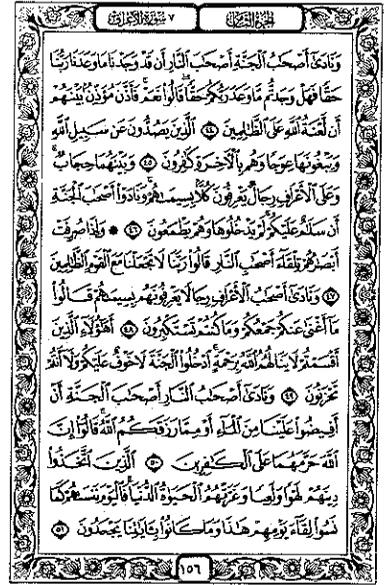 ٧ سُورَةُ الأَعْرَافِ
الجُزْءُ الثَّامِنُ
وَنَادَىٰٓ أَصْحَٰبُ ٱلْجَنَّةِ أَصْحَٰبَ ٱلنَّارِ أَن قَدْ وَجَدْنَا مَا وَعَدَنَا رَبُّنَا
حَقًّا فَهَلْ وَجَدتُّم مَّا وَعَدَ رَبُّكُمْ حَقًّا ۖ قَالُوا۟ نَعَمْ ۚ فَأَذَّنَ مُؤَذِّنٌۢ بَيْنَهُمْ
أَن لَّعْنَةُ ٱللَّهِ عَلَى ٱلظَّٰلِمِينَ ٤٤ ٱلَّذِينَ يَصُدُّونَ عَن سَبِيلِ ٱللَّهِ
وَيَبْغُونَهَا عِوَجًا وَهُم بِٱلْءَاخِرَةِ كَٰفِرُونَ ٤٥ وَبَيْنَهُمَا حِجَابٌ ۚ
وَعَلَى ٱلْأَعْرَافِ رِجَالٌ يَعْرِفُونَ كُلًّۢا بِسِيمَىٰهُمْ ۚ وَنَادَوْا۟ أَصْحَٰبَ ٱلْجَنَّةِ
أَن سَلَٰمٌ عَلَيْكُمْ ۚ لَمْ يَدْخُلُوهَا وَهُمْ يَطْمَعُونَ ٤٦ ۞ وَإِذَا صُرِفَتْ
أَبْصَٰرُهُمْ تِلْقَآءَ أَصْحَٰبِ ٱلنَّارِ قَالُوا۟ رَبَّنَا لَا تَجْعَلْنَا مَعَ ٱلْقَوْمِ ٱلظَّٰلِمِينَ
٤٧ وَنَادَىٰٓ أَصْحَٰبُ ٱلْأَعْرَافِ رِجَالًا يَعْرِفُونَهُم بِسِيمَىٰهُمْ قَالُوا۟
مَآ أَغْنَىٰ عَنكُمْ جَمْعُكُمْ وَمَا كُنتُمْ تَسْتَكْبِرُونَ ٤٨ أَهَٰٓؤُلَآءِ ٱلَّذِينَ
أَقْسَمْتُمْ لَا يَنَالُهُمُ ٱللَّهُ بِرَحْمَةٍ ۚ ٱدْخُلُوا۟ ٱلْجَنَّةَ لَا خَوْفٌ عَلَيْكُمْ وَلَآ أَنتُمْ
تَحْزَنُونَ ٤٩ وَنَادَىٰٓ أَصْحَٰبُ ٱلنَّارِ أَصْحَٰبَ ٱلْجَنَّةِ أَنْ
أَفِيضُوا۟ عَلَيْنَا مِنَ ٱلْمَآءِ أَوْ مِمَّا رَزَقَكُمُ ٱللَّهُ ۚ قَالُوٓا۟ إِنَّ
ٱللَّهَ حَرَّمَهُمَا عَلَى ٱلْكَٰفِرِينَ ٥٠ ٱلَّذِينَ ٱتَّخَذُوا۟
دِينَهُمْ لَهْوًا وَلَعِبًا وَغَرَّتْهُمُ ٱلْحَيَوٰةُ ٱلدُّنْيَا ۚ فَٱلْيَوْمَ نَنسَىٰهُمْ كَمَا
نَسُوا۟ لِقَآءَ يَوْمِهِمْ هَٰذَا وَمَا كَانُوا۟ بِـَٔايَٰتِنَا يَجْحَدُونَ ٥١
١٥٦